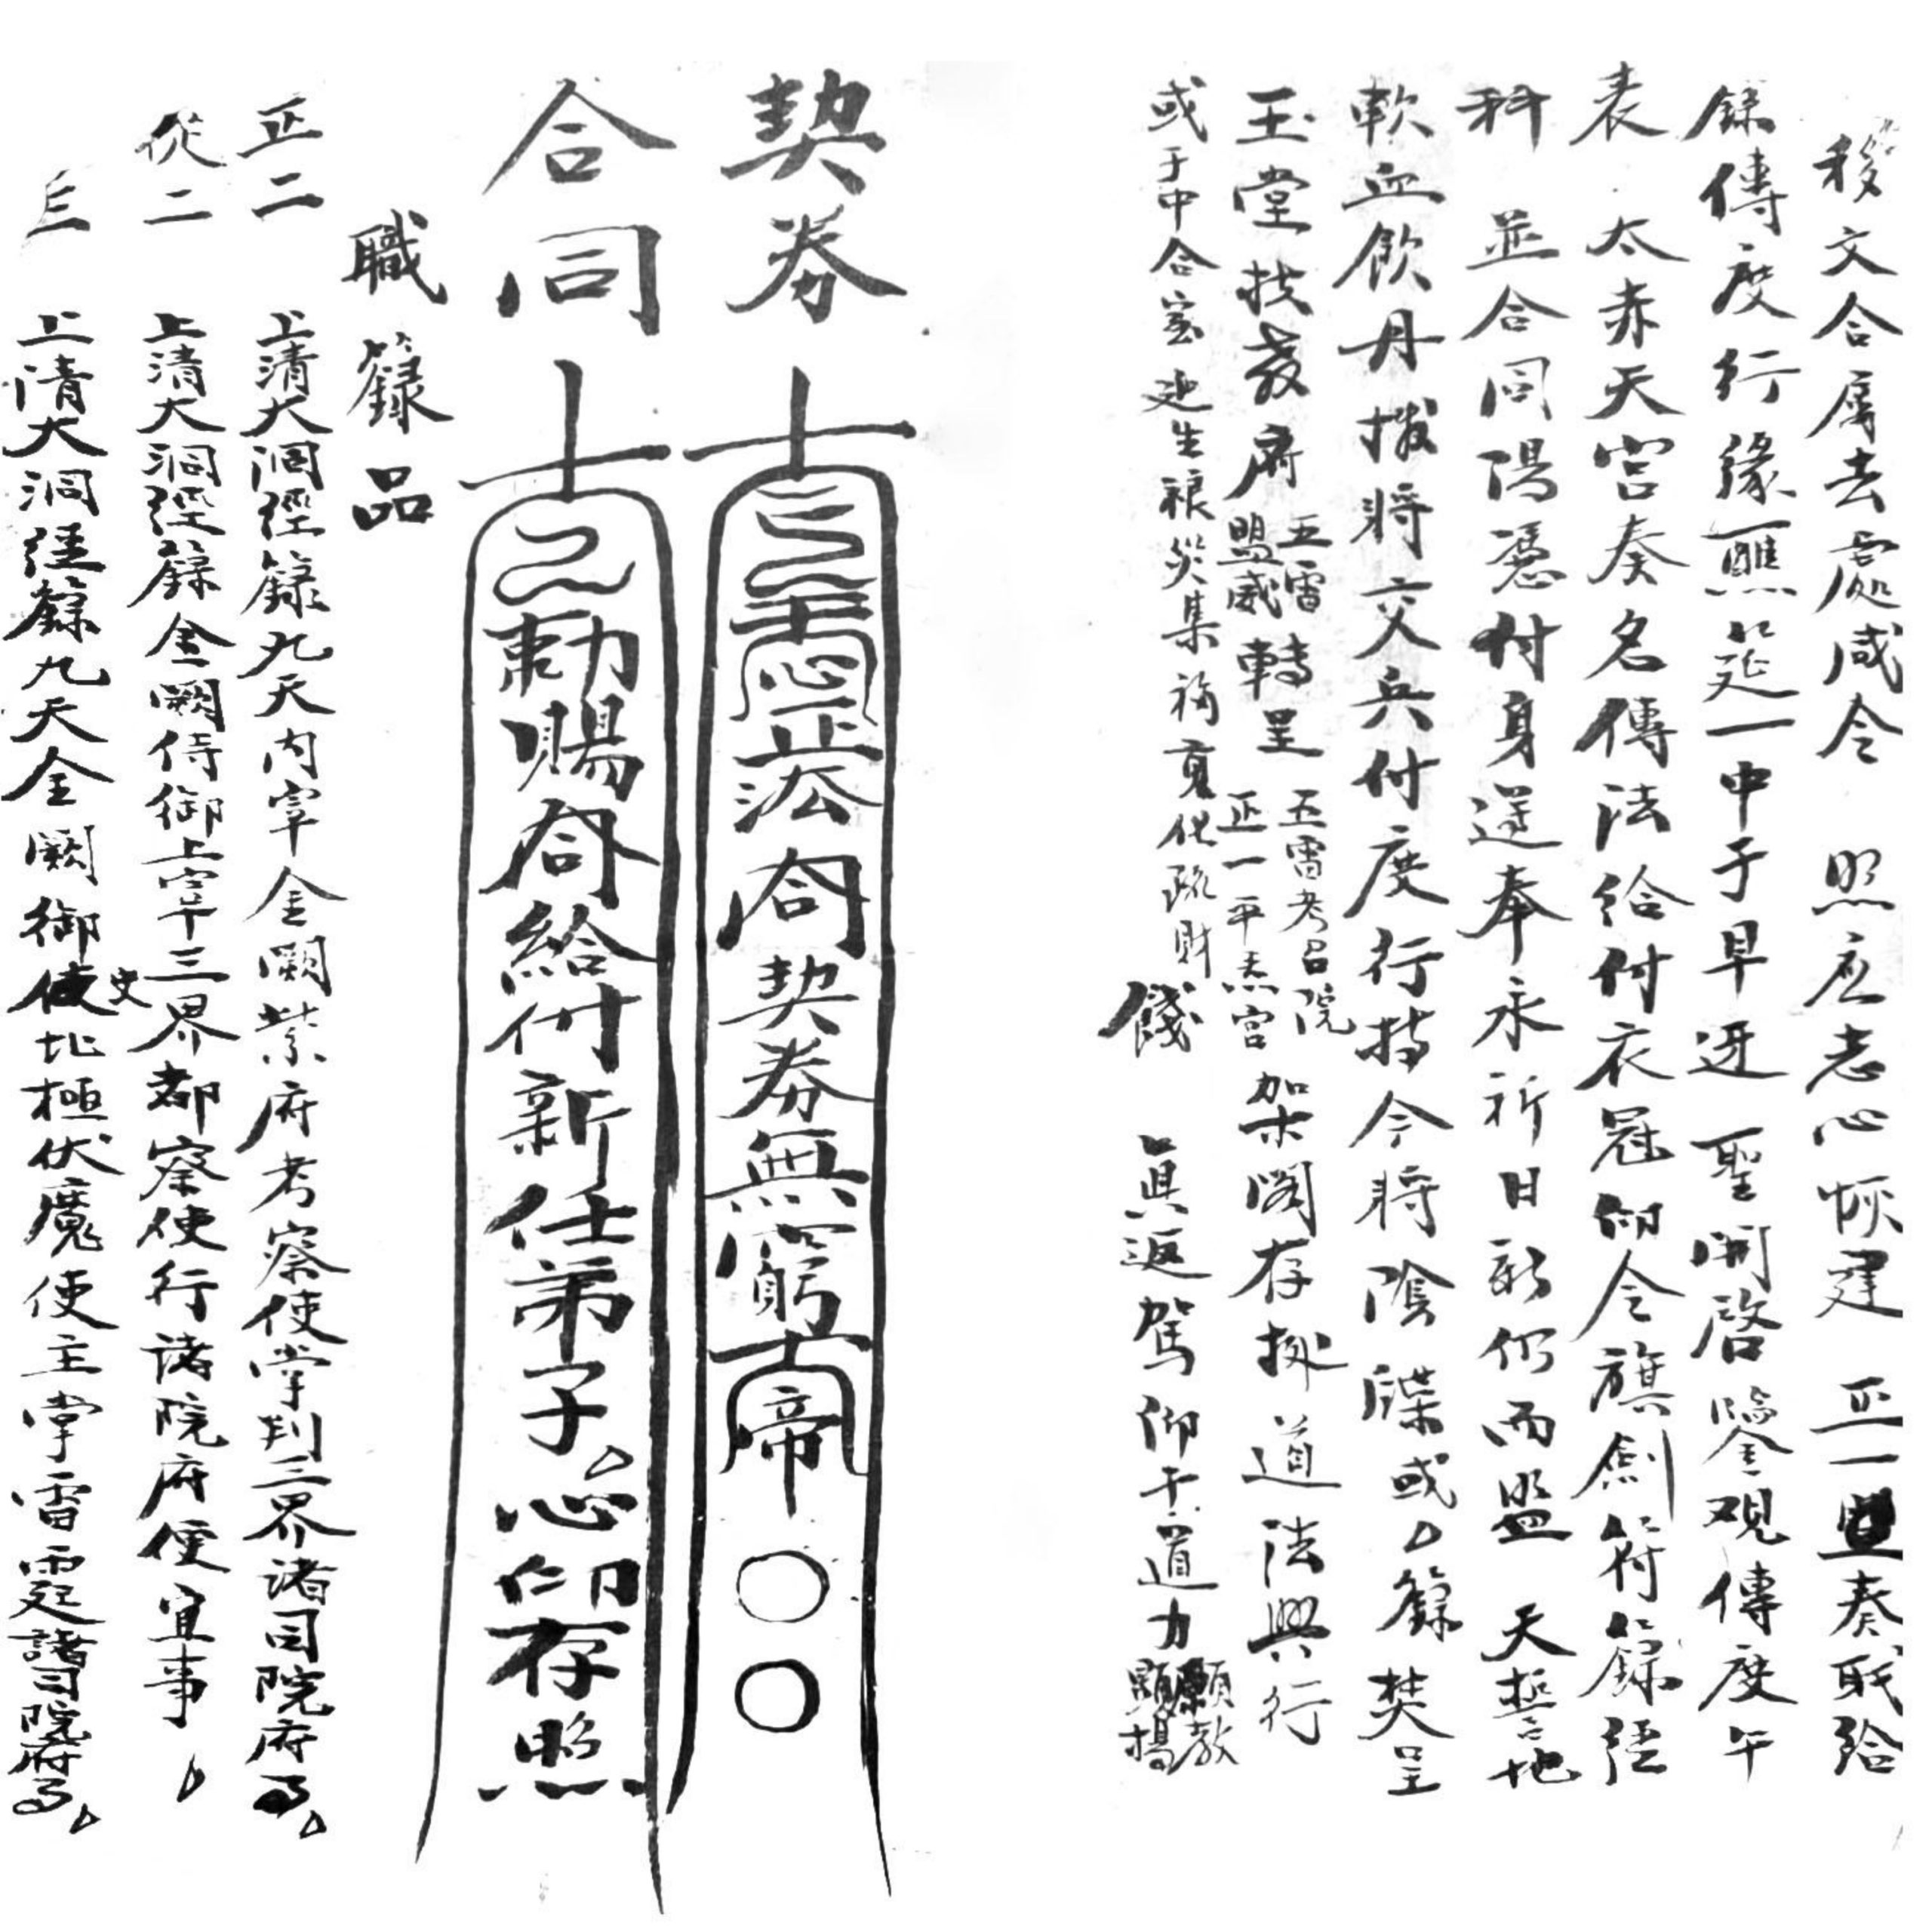 移文合屬去處咸令 照應志心恢建 正一 奏职給
籙傳度行緣醮筵一中于早迓 聖開啓鑒观傳度午
表 太赤天宫奏名傳法給付衣冠仰令旗劍符籙経
科 並合同陽憑付身送奉永祈日新仍而盟 天誓地
軟血飲丹撥将交兵付度行持令将陰牒或 籙焚呈
玉堂扶教府 五雷 盟威 轉呈 五雷考召院 正一平炁宫 架阁存 道法興行
或于中合家 生禳災集福 化 財 餞 眞返駕仰干道力 願教 顯揚
契券 法 契券無窮 帝 〇〇
合同 勅賜 給付新任弟子 心印存照
職籙品
正二 上清大洞經籙九天内宰金闕紫府考察使掌判三界諸司院府事
從二 上清大洞經籙金闕侍御上宰三界都察使行諸院府便宜事
三 上清大洞経籙九天金闕御使史北極伏魔使主掌雷霆諸司院府事